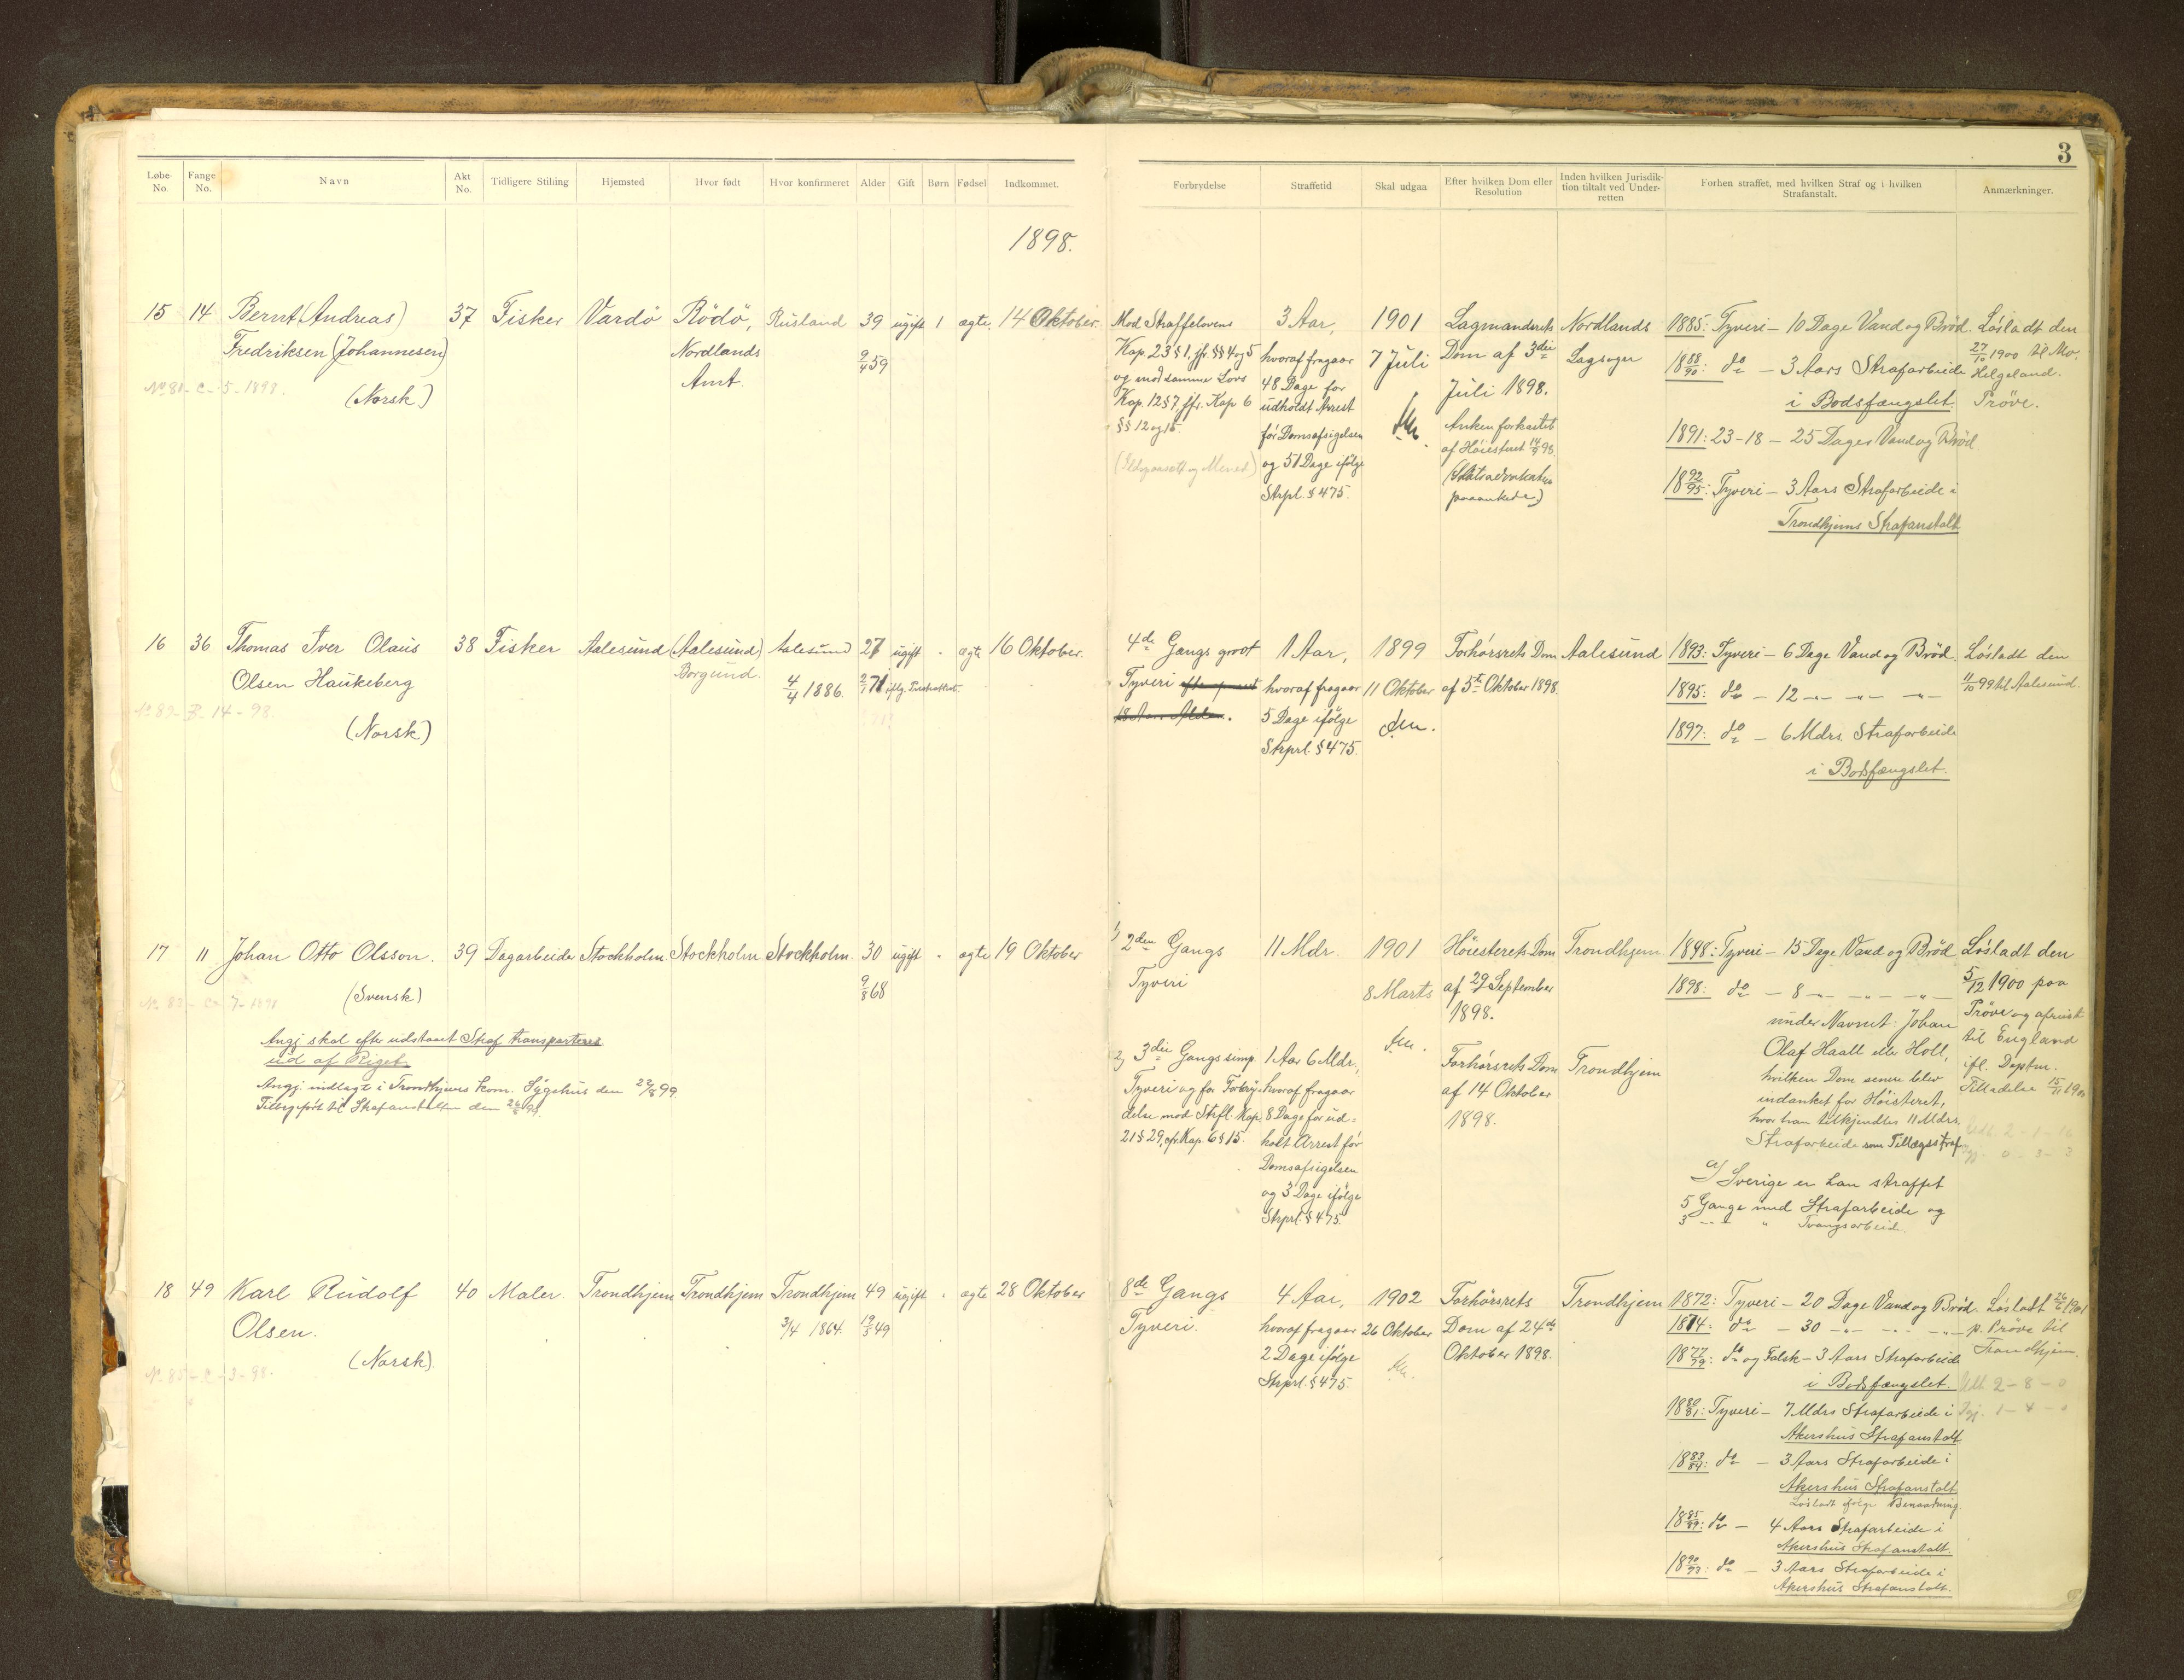 3
Løbe-No. Fange No. Navn Akt No. Tidligere Stilling Hjemsted Hvor født Hvor konfirmeret Alder Gift Børn Fødsel Indkommet.
Forbrydelse Straffetid Skal udgaa Efter hvilken Dom eller Resolution Inden hvilken Jurisdiktion tiltalt ved Underretten Forhen straffet, med hvilken Straf og i hvilken Strafanstalt. Anmærkninger.
1898.
15 14 Bernt (Andreas) 37 Fisker Vardö Rödö, Rusland 39 ugift 1 ægte 14 Oktober.
Fredriksen (Johannesen) Nordlands 9/4 59
No 81 - C - 5 - 1898. Amt.
(Norsk)
Mod Straffelovens
Kap. 23 § 1, jfr. §§ 4 og 5
og mod samme Lovs
Kap. 12 § 7, jfr. Kap 6
§§ 12 og 15.
3 Aar,
hvoraf fragaar
48 Dage for
udholdt Arrest
før Domsafsigelsen
og 51 Dage ifölge
Strpl. § 475.
1901
7 Juli
Lagmandsrets
Dom af 3die
Juli 1898.
Anken forkastet
af Höiesteret 14/9 98.
(Statsadvokaten
paaankede)
Nordlands
Lagsogn
1885: Tyveri - 10 Dage Vand og Bröd.
18 88/90: do - 3 Aars Strafarbeide
i Bodsfængslet.
1891: 23-18 - 25 Dages Vand og Bröd.
18 92/95: Tyveri - 3 Aars Strafarbeide i
Trondhjems Strafanstalt
Lösladt den
27/10 1900 til Mo.
Helgeland.
Pröve.
16 36 Thomas Iver Olaus 38 Fisker Aalesund (Aalesund) Aalesund 27 ugift " ægte 16 Oktober.
Olsen Haukeberg Borgund. 4/4 1886. 2/1 71 iflg. Presteattest.
No 82 - B - 14 - 98.
(Norsk)
4de Gangs grovt
Tyveri efter opnaaet
18 Aars Alder.
1 Aar,
hvoraf fragaar
5 Dage ifölge
Strprl. § 475.
1899
11 Oktober
Forhörsrets Dom
af 5te Oktober 1898.
Aalesund
1893: Tyveri - 6 Dage Vand og Bröd
1895: do - 12 -"- -"- -"-
1897: do - 6 Mdrs. Strafarbeide
i Bodsfængslet.
Lösladt den
11/10 99 til Aalesund.
17 11 Johan Otto Olsson. 39 Dagarbeider Stockholm Stockholm Stockholm 30 ugift " ægte 19 Oktober
(Svensk) 9/8 68
No 83 - C - 7 - 1898
Angj. skal efter udstaaet Straf transporteres
ud af Riget.
Angj. indlagt i Trondhjems Kom. Sygehus den 22/8 99.
1) 2den Gangs
Tyveri
11 Mdr.
1901
8 Marts
Höiesterets Dom
af 29 September
1898.
Trondhjem
2) 3die Gangs simp.
Tyveri og for Forbry-
delse mod Strfl. Kap.
21 § 29, cfr. Kap. 6 § 15.
1 Aar 6 Mdr,
hvoraf fragaar
8 Dage for ud=
holt Arrest før
Domsafsigelsen
og 3 Dage ifölge
Strprl. § 475.
Forhörsrets Dom
af 14 Oktober
1898.
Trondhjem
1898: Tyveri - 15 Dage Vand og Bröd
1898: do - 8 -"- -"- -"-
under Navnet: Johan
Olaf Haall eller Holl,
hvilken Dom senere blev
indanket for Höisteret,
hvor han tilkjendtes 11 Mdrs.
Strafarbeide som Tillægsstraf
a) I Sverige er han straffet
5 Gange med Strafarbeide og
3 -"- " Tvangsarbeid.
Lösladt den
5/12 1900 paa
Pröve og afreist
til England
ifl. Deptm.
Tilladelse 15/11 1900
18 49 Karl Rudolf 40 Maler. Trondhjem Trondhjem Trondhjem 49 ugift " ægte 28 Oktober
Olsen. 3/4 1864. 19/3 49
(Norsk)
No 85 - C - 3 - 98.
8de Gangs
Tyveri.
4 Aar,
hvoraf fragaar
2 Dage ifölge
Strprl. § 475.
1902
26 Oktober
Forhörsrets
Dom af 24de
Oktober 1898.
Trondhjem
1872: Tyveri - 20 Dage Vand og Bröd.
1874: do - 30 -"- -"- -"-
18 77/79: do og Falsk - 3 Aars Strafarbeide
i Bodsfængslet.
18 80/81: Tyveri - 7 Mdrs Strafarbeide i
Akershus Strafanstalt
18 83/84: do - 3 Aars Strafarbeide i
Akershus Strafanstalt
Lösladt ifölge Benaadning.
18 85/89: do - 4 Aars Strafarbeide i
Akershus Strafanstalt.
18 90/93: do - 3 Aars Strafarbeide i
Akershus Strafanstalt.
Lösladt 26/6 1901
p. Pröve til
Trondhjem.
Udt 2 - 8 - 0